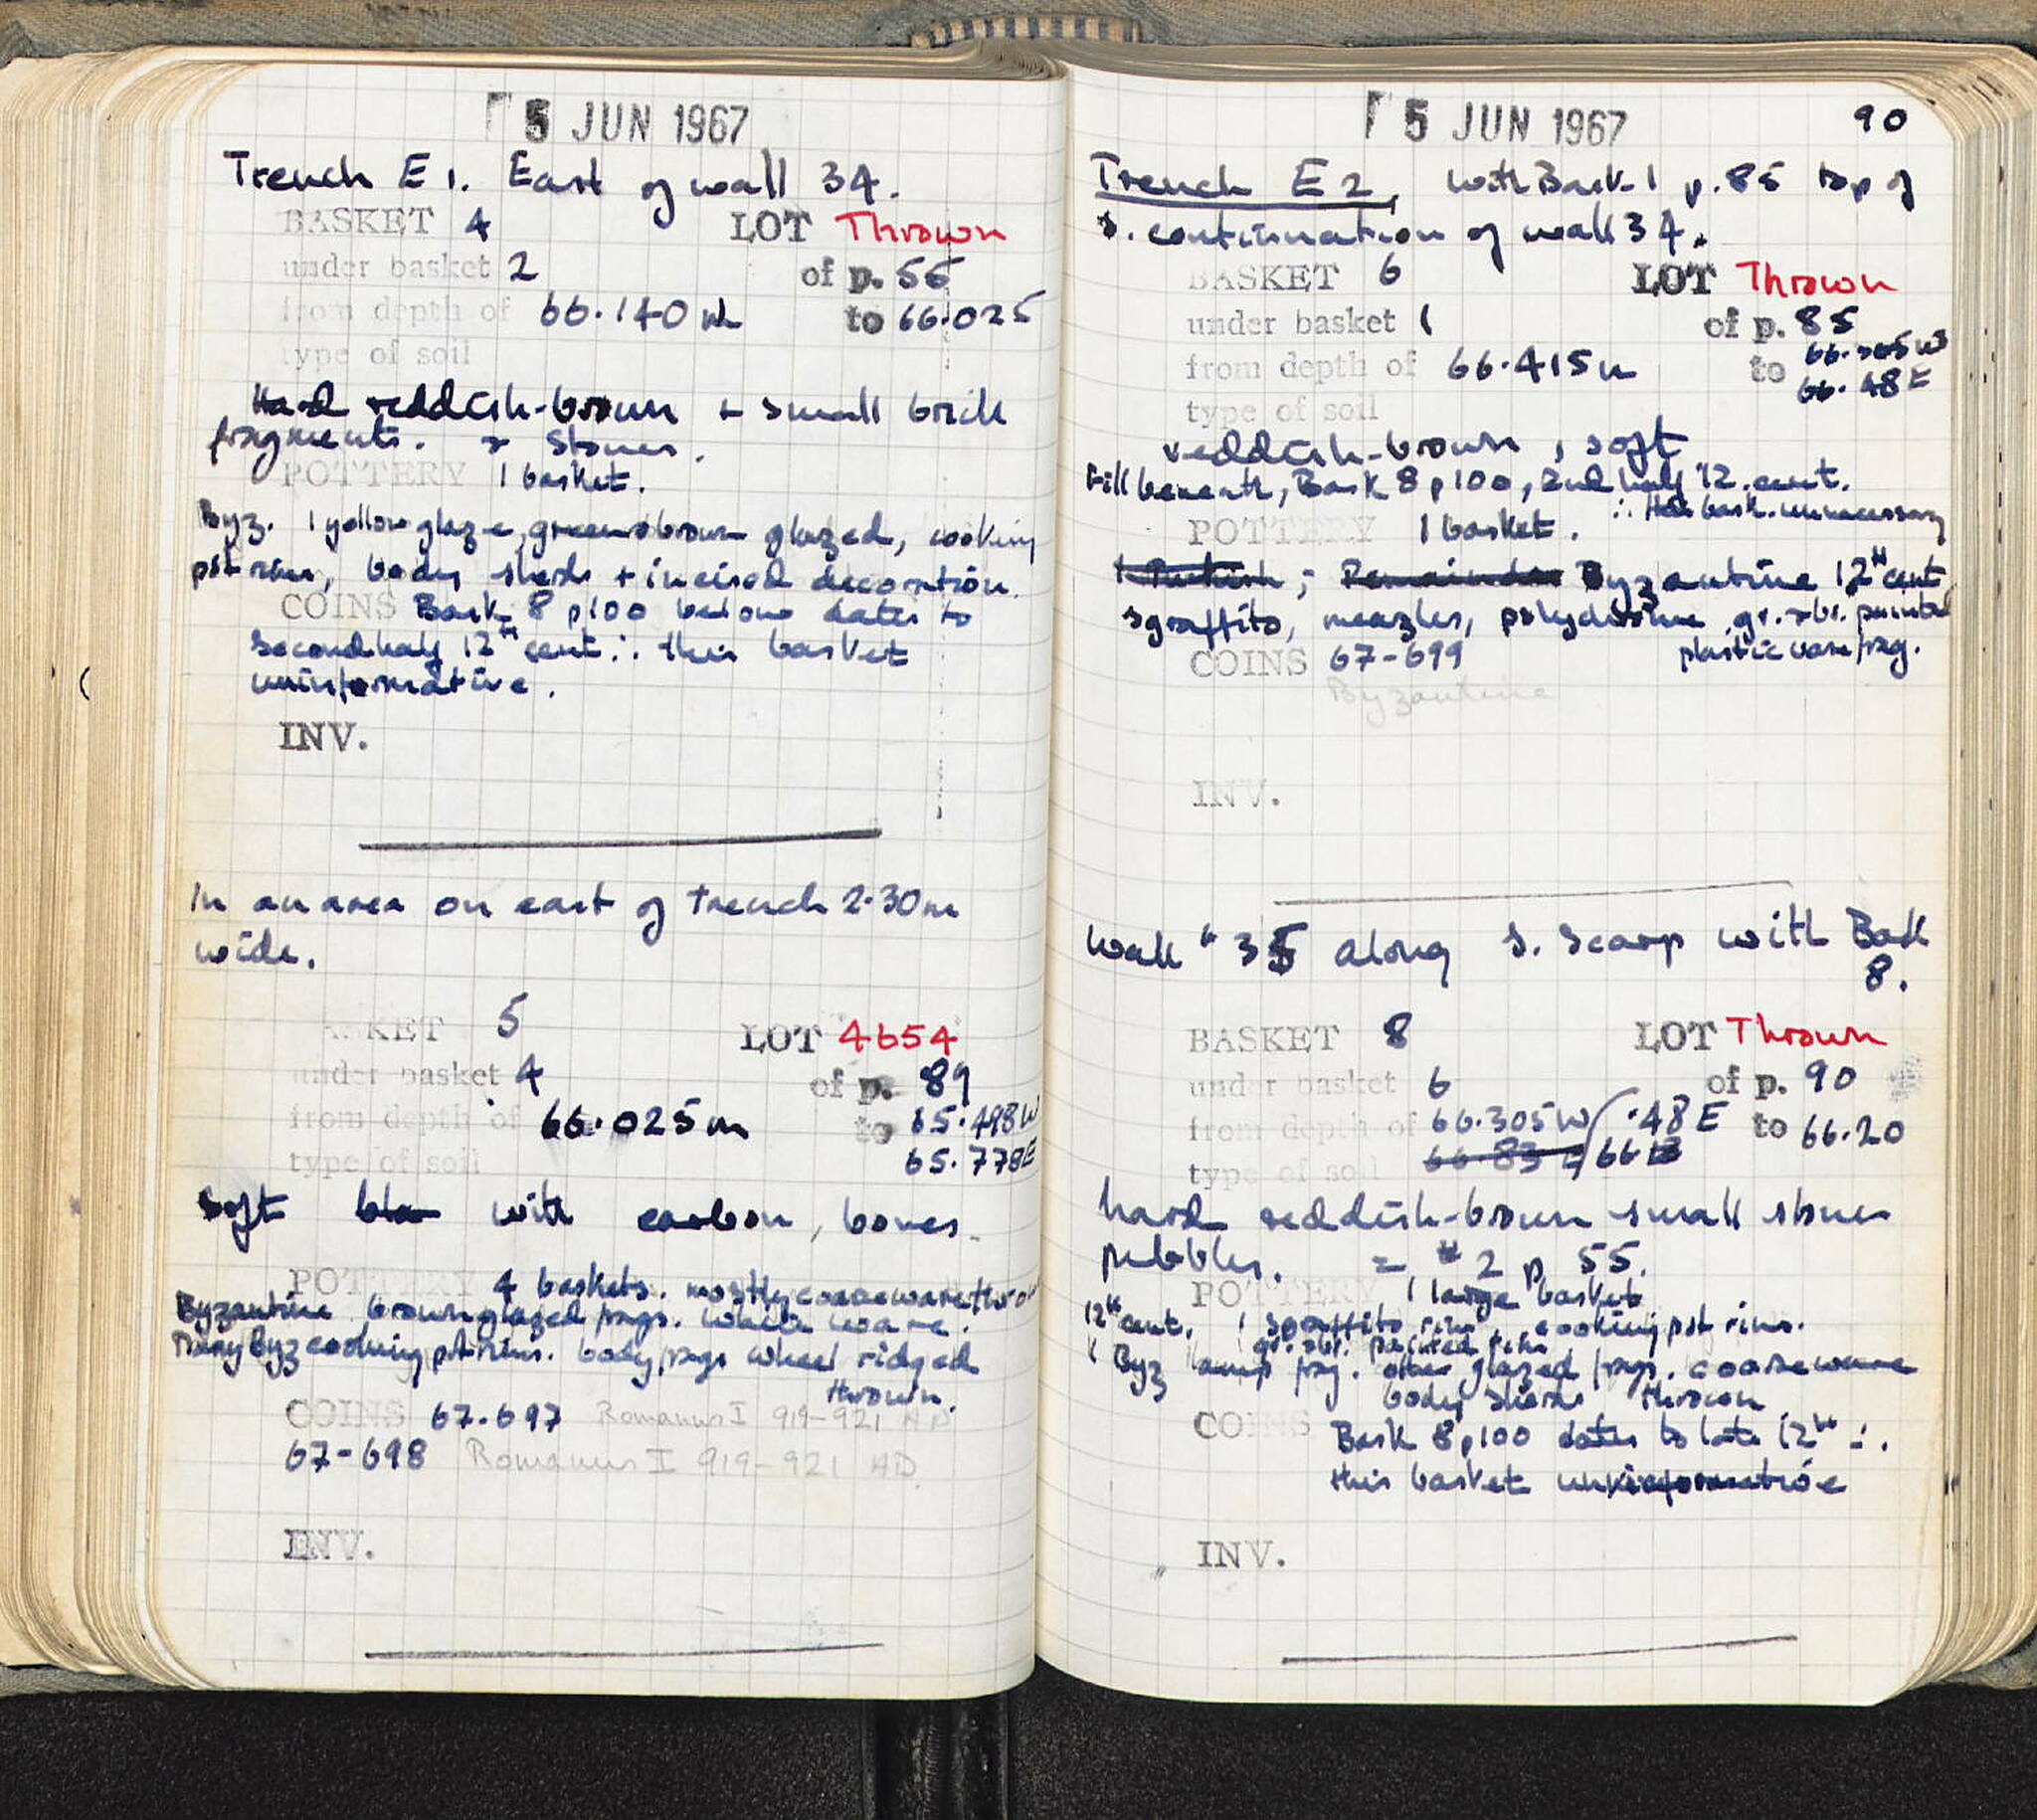 5 JUN 1967
Trench E 1. East of wall 34.
BASKET 4 LOT Thrown
under basket 2 of p. 55
from depth of 66.140 m to 66.025
type of soil
Hard reddish-brown + small brick
fragments. + Stones.
POTTERY 1 basket.
Byz. 1 yellow glaze, green & brown glazed, cooking
pot rims, body sherds + incised decoration.
COINS Bask 8 p 100 below dates to
second half 12th cent ∴ this basket
uninformative.
INV.
In an area on east of trench 2.30m
wide.
BASKET 5 LOT 4654
under basket 4 of p. 89
from depth of 66.025 m to 65.498W
65.778E
type of soil
soft bla with carbon, bones.
POTTERY 4 baskets. mostly coarse ware thrown
Byzantine brown glazed frags. white ware.
Many Byz cooking pot rims. body frags wheel ridged
thrown.
COINS 67.697 Romanus I 919-921 AD
67-698 Romanus I 919-921 AD
INV.
5 JUN 1967 90
Trench E 2, with Bask. 1 p. 85 top of
s. continuation of wall 34.
BASKET 6 LOT Thrown
under basket 1 of p. 85
from depth of 66.415 m to 66.305 W
66.48 E
type of soil
reddish-brown, soft
Fill beneath, Bask 8 p 100, 2nd half 12. cent.
∴ this bask. unnecessary
POTTERY 1 basket.
1 Turkish; Remainder Byzantine 12th cent
sgraffito, measles, polychrome gr. & br. painted
plastic ware frag.
COINS 67-699
Byzantine
INV.
Wall " 35 along S. Scarp with Bask
8.
BASKET 8 LOT Thrown
under basket 6 of p. 90
from depth of 66.305 W / .48 E to 66.20
66.83 E / 66
type of soil
hard reddish-brown small stones
pebbles. = # 2 p 55.
POTTERY 1 large basket
12th cent. 1 sgraffito rim, cooking pot rims.
gr. & br. painted rim
1 Byz lamp frag. other glazed frags. coarse ware
body sherds thrown
COINS Bask 8 p 100 dates to late 12th ∴
this basket uninformative
INV.